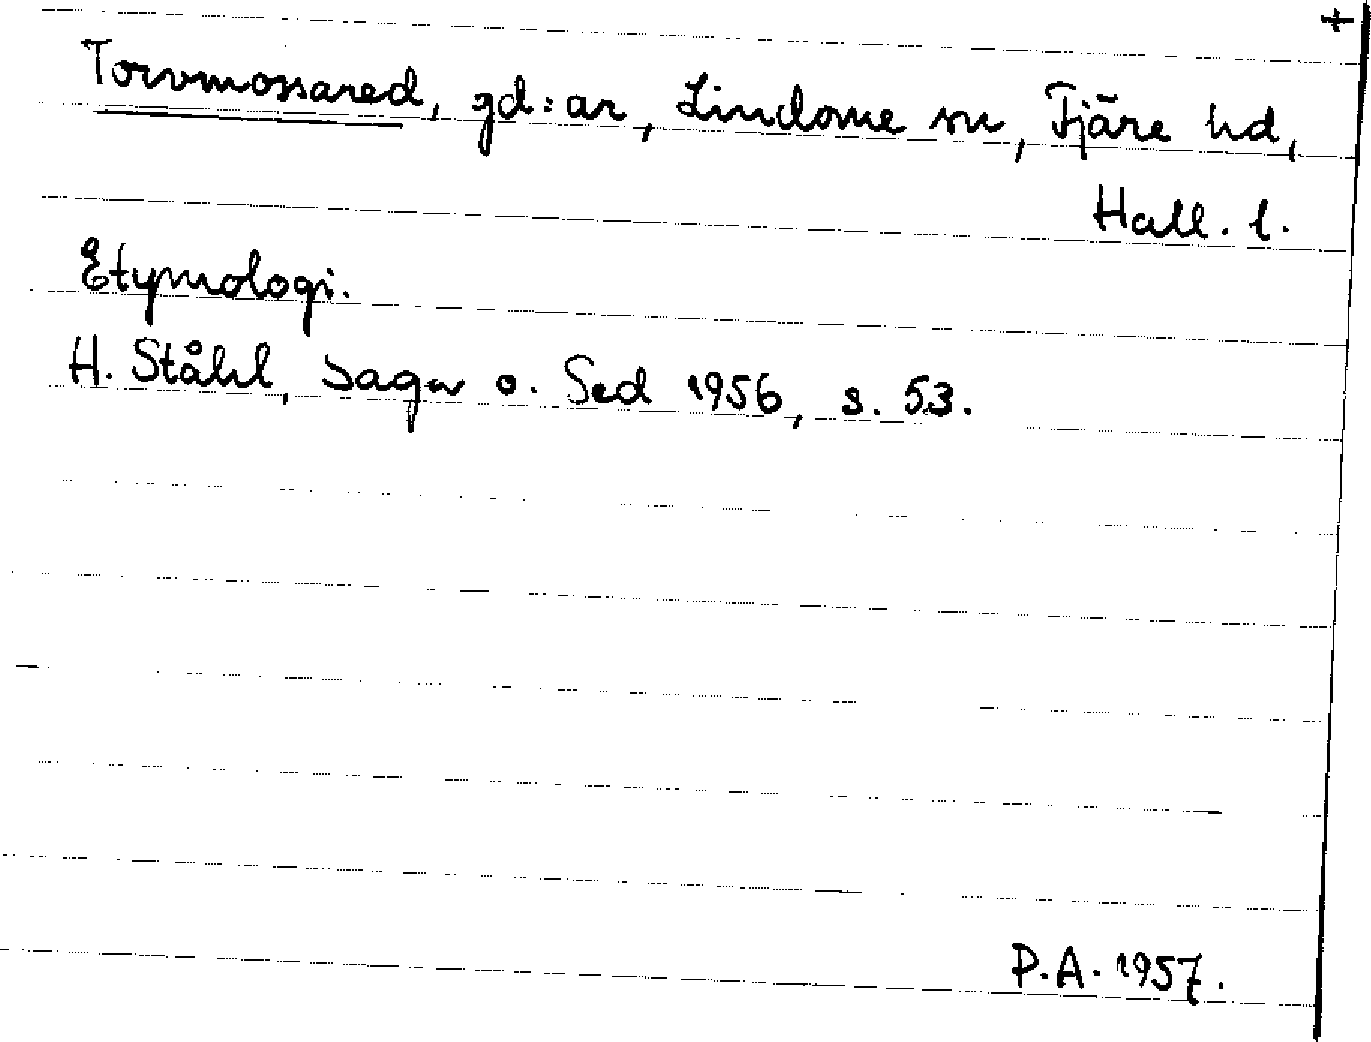 +
Torvmossared, gd:ar, Lindome sn, Fjäre hd,
Hall. l.
Etymologi.
H. Ståhl, Saga o. Sed 1956, s. 53.
P.A. 1957.